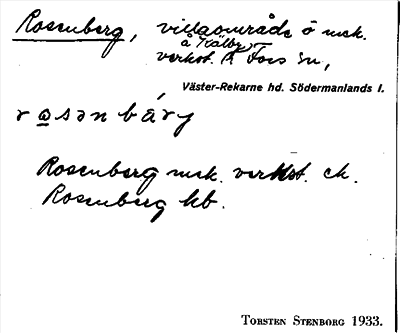 Rosenberg, villaområde ö mek.
å Kälby
verkst. Fors sn,
Väster-Rekarne hd. Södermanlands l.
rosənbárj
Rosenberg mek. verkst. ek.
Rosenberg hb.
TORSTEN STENBORG 1933.